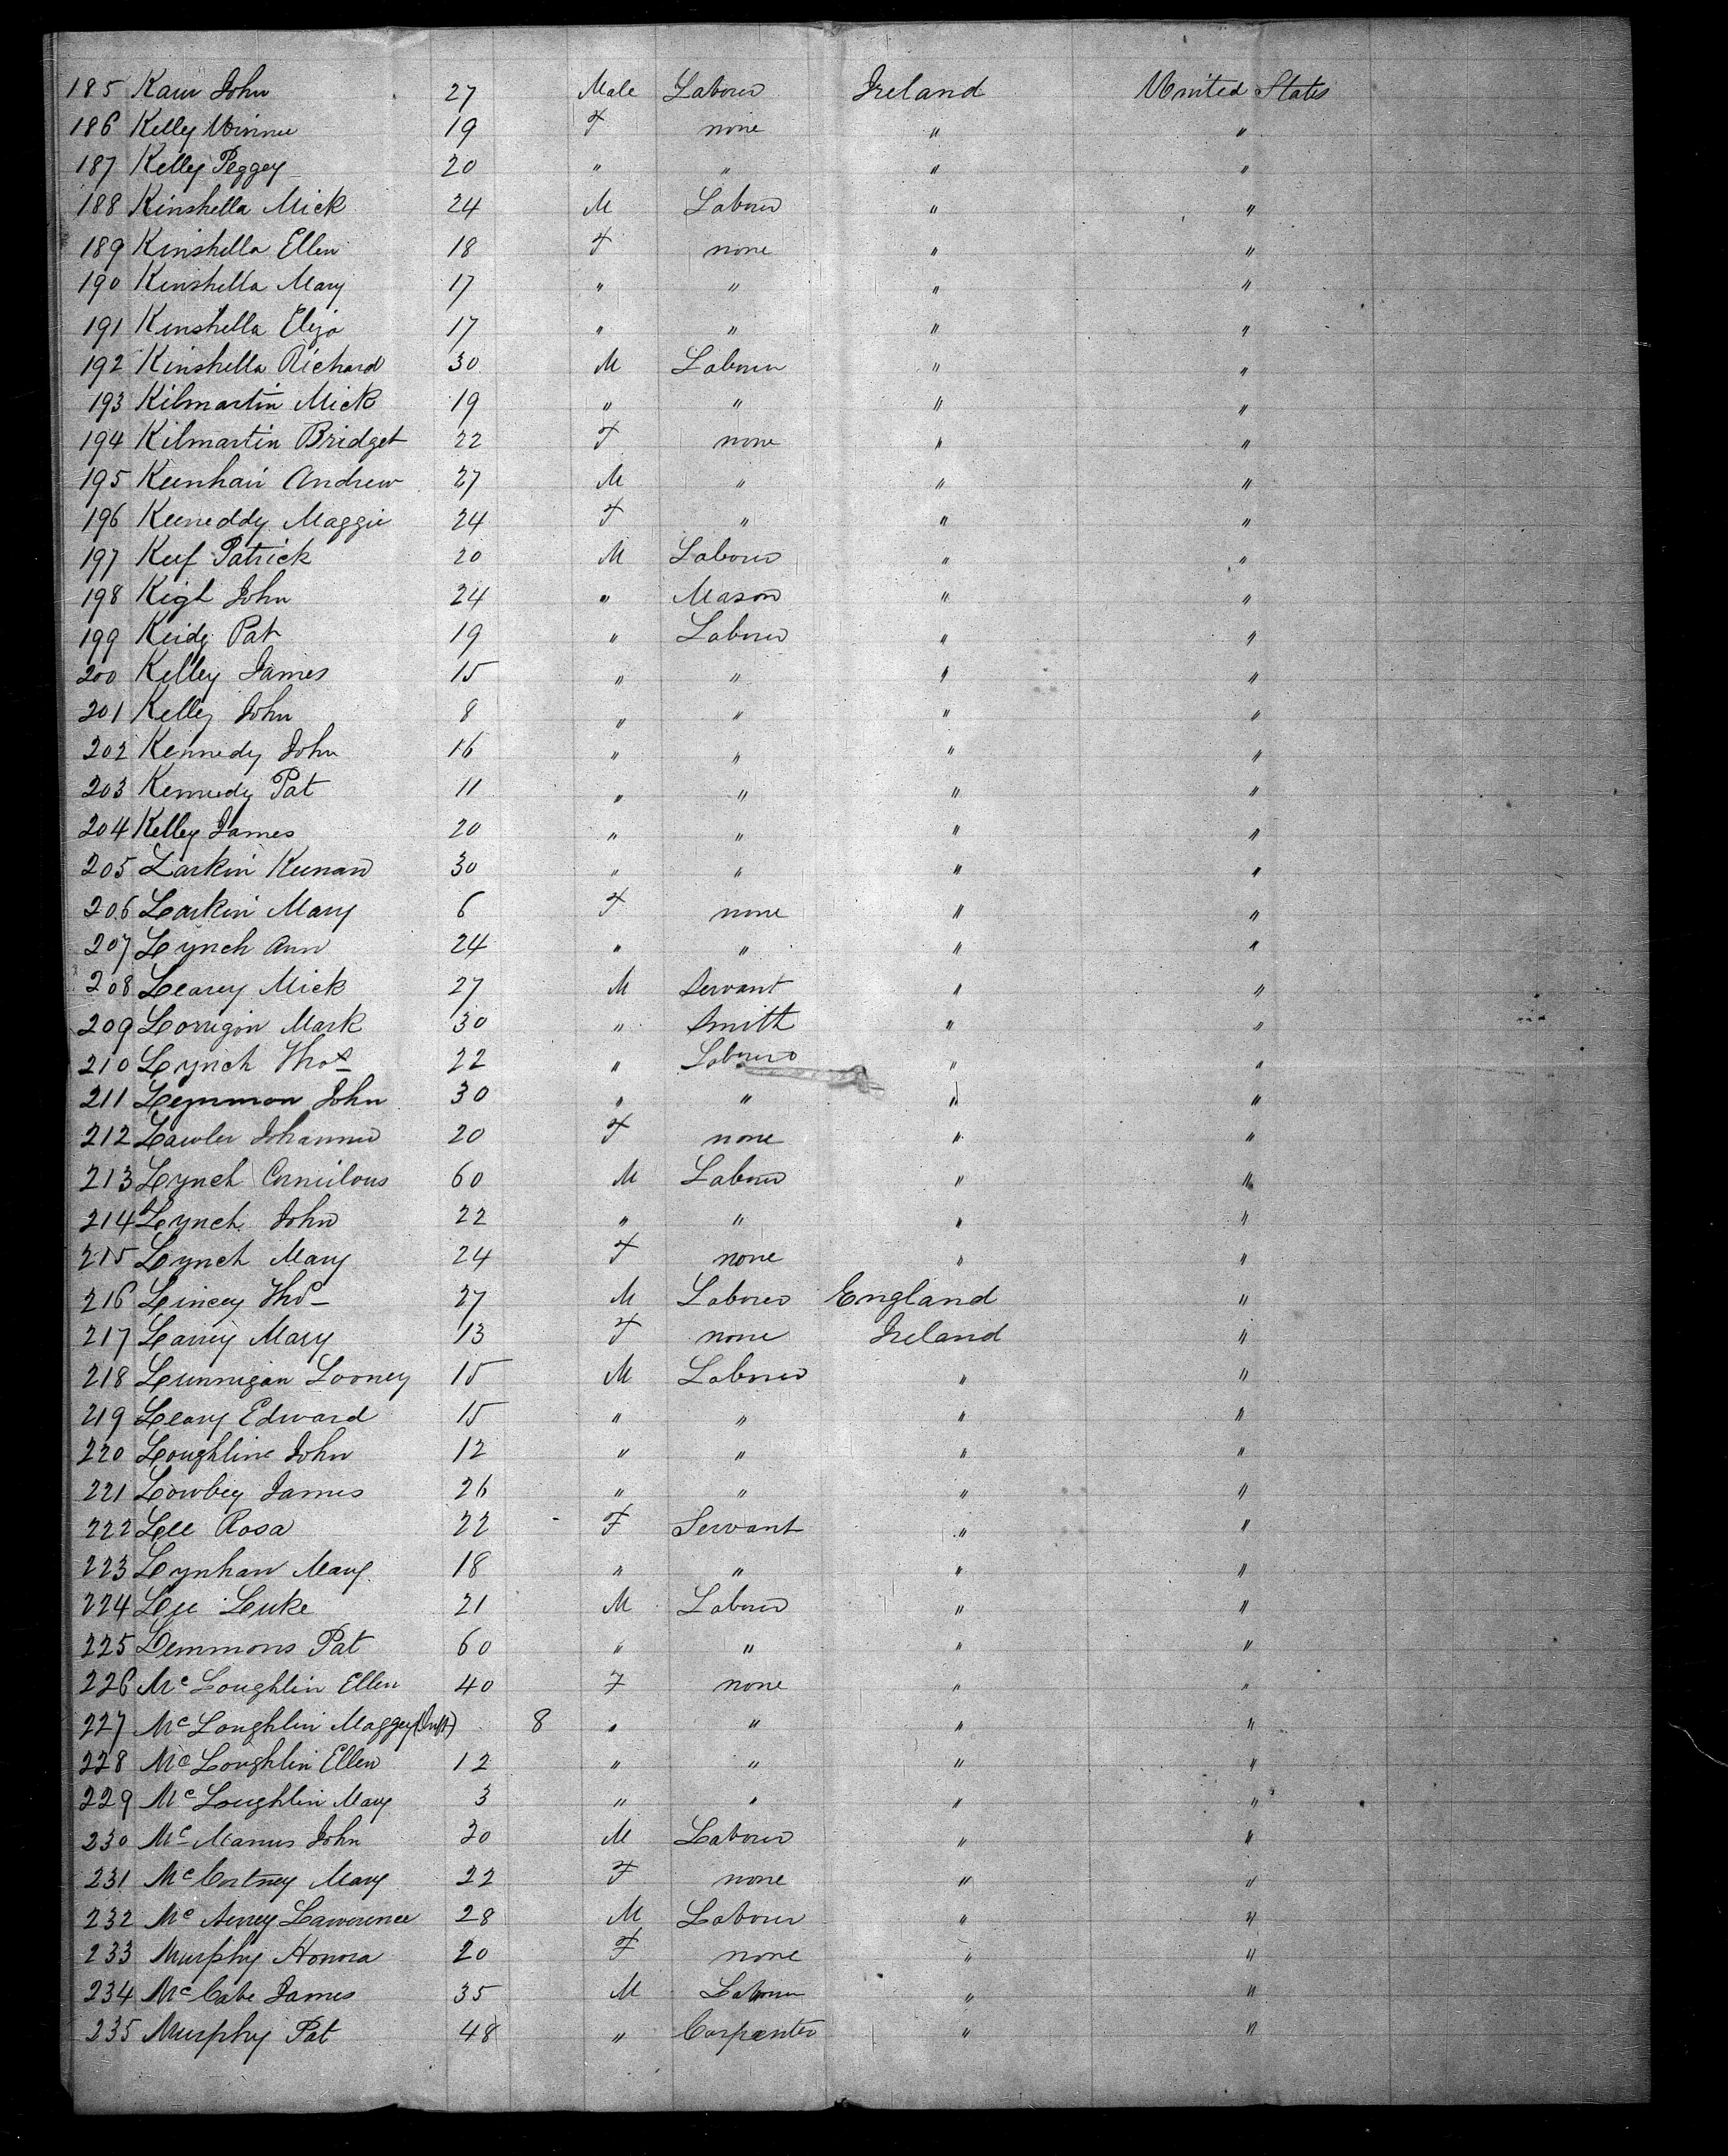 185 Kaw John 27 Male Laborer Ireland United States
186 Kelly Winnie 19 F none " "
187 Kelly Peggey 20 " " " "
188 Kinshella Mick 24 M Laborer " "
189 Kinshella Ellen 18 F none " "
190 Kinshella Mary 17 " " " "
191 Kinshella Eliza 17 " " " "
192 Kinshella Richard 30 M Laborer " "
193 Kilmartin Mick 19 " " " "
194 Kilmartin Bridget 22 F none " "
195 Keenhan Andrew 27 M " " "
196 Keeneddy Maggie 24 F " " "
197 Keef Patrick 20 M Laborer " "
198 John 24 " Mason " "
199 Pat 19 " Laborer " "
200 Kelley James 15 " " " "
201 Kelley John 8 " " " "
202 Kennedy John 16 " " " "
203 Kennedy Pat 11 " " " "
204 Kelley James 20 " " " "
205 Larkin Keenan 30 " " " "
206 Larkin Mary 6 F none " "
207 Lynch Ann 24 " " " "
208 Learey Mick 27 M Servant " "
209 Lorrigan Mark 30 " Smith " "
210 Lynch Thos 22 " Laborer " "
211 Leynmon John 30 " " " "
212 Lawler Johanna 20 F none " "
213 Lynch Cornilous 60 M Laborer " "
214 Lynch John 22 " " " "
215 Lynch Mary 24 F none " "
216 Lincey Tho 27 M Laborer England "
217 Larrey Mary 13 F none Ireland "
218 Lunnigan Looney 15 M Laborer " "
219 Leary Edward 15 " " " "
220 Loughline John 12 " " " "
221 Lowbey James 26 " " " "
222 Lee Rosa 22 F Servant " "
223 Lynhan Mary 18 " " " "
224 Lee Luke 21 M Laborer " "
225 Lemmons Pat 60 " " " "
226 Mc Loughlin Ellen 40 F none " "
227 Mc Loughlin Maggey (Inft) 8 " " " "
228 Mc Loughlin Ellen 12 " " " "
229 Mc Loughlin Mary 3 " " " "
230 Mc Manus John 30 M Laborer " "
231 Mc Cortney Mary 22 F none " "
232 Mc Lawerence 28 M Laborer " "
233 Murphy Honora 20 F none " "
234 Mc Cabe James 35 M Laborer " "
235 Murphy Pat 48 " Carpenter " "